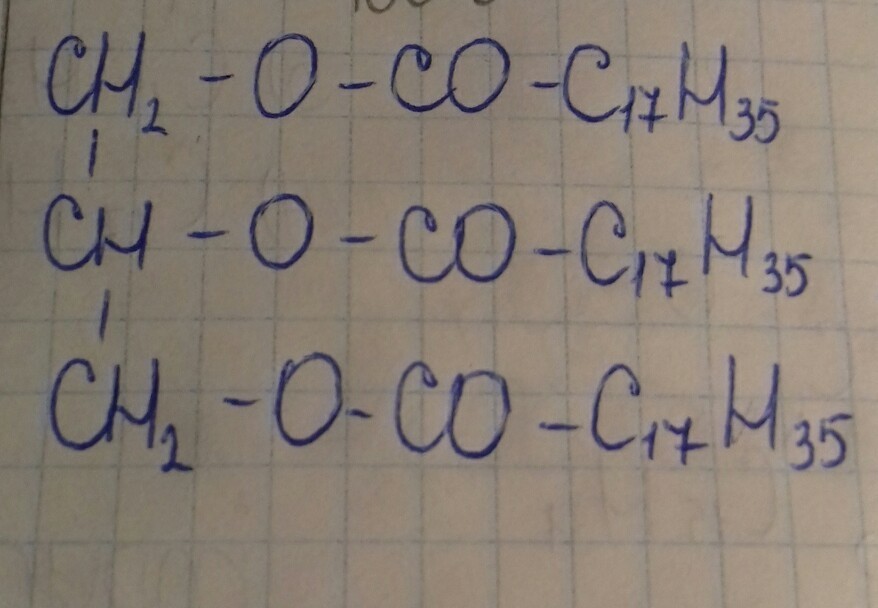 CH₂ - O - CO - C₁₇H₃₅
|
CH - O - CO - C₁₇H₃₅
|
CH₂ - O - CO - C₁₇H₃₅